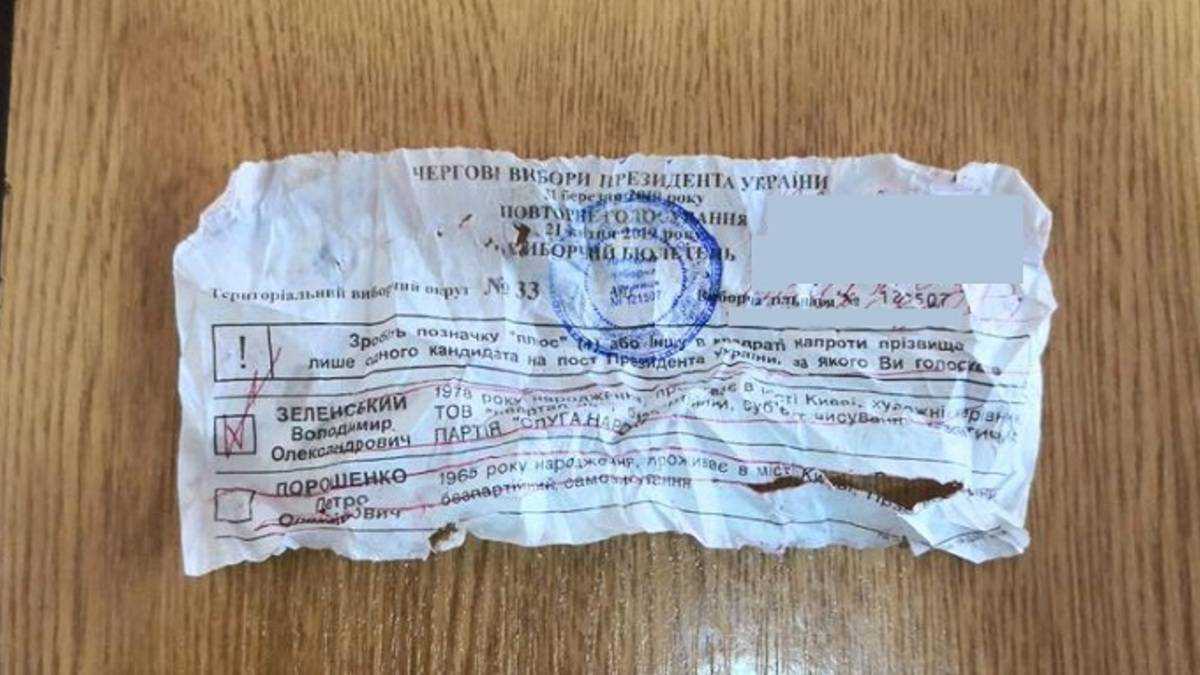 ЧЕРГОВІ ВИБОРИ ПРЕЗИДЕНТА УКРАЇНИ
31 березня 2019 року
ПОВТОРНЕ ГОЛОСУВАННЯ
21 квітня 2019 року
ВИБОРЧИЙ БЮЛЕТЕНЬ
Територіальний виборчий округ № 33
Виборча дільниця №
№ 121507
! Зробіть позначку "плюс" (+) або іншу в квадраті напроти прізвища
лише одного кандидата на пост Президента України, за якого Ви
ЗЕЛЕНСЬКИЙ
Володимир
Олександрович
1978 року народження, проживає в місті Києві,
ТОВ
ПАРТІЯ "СЛУГА
ПОРОШЕНКО
Петро
1965 року народження, проживає в місті
безпартійний, самовисування